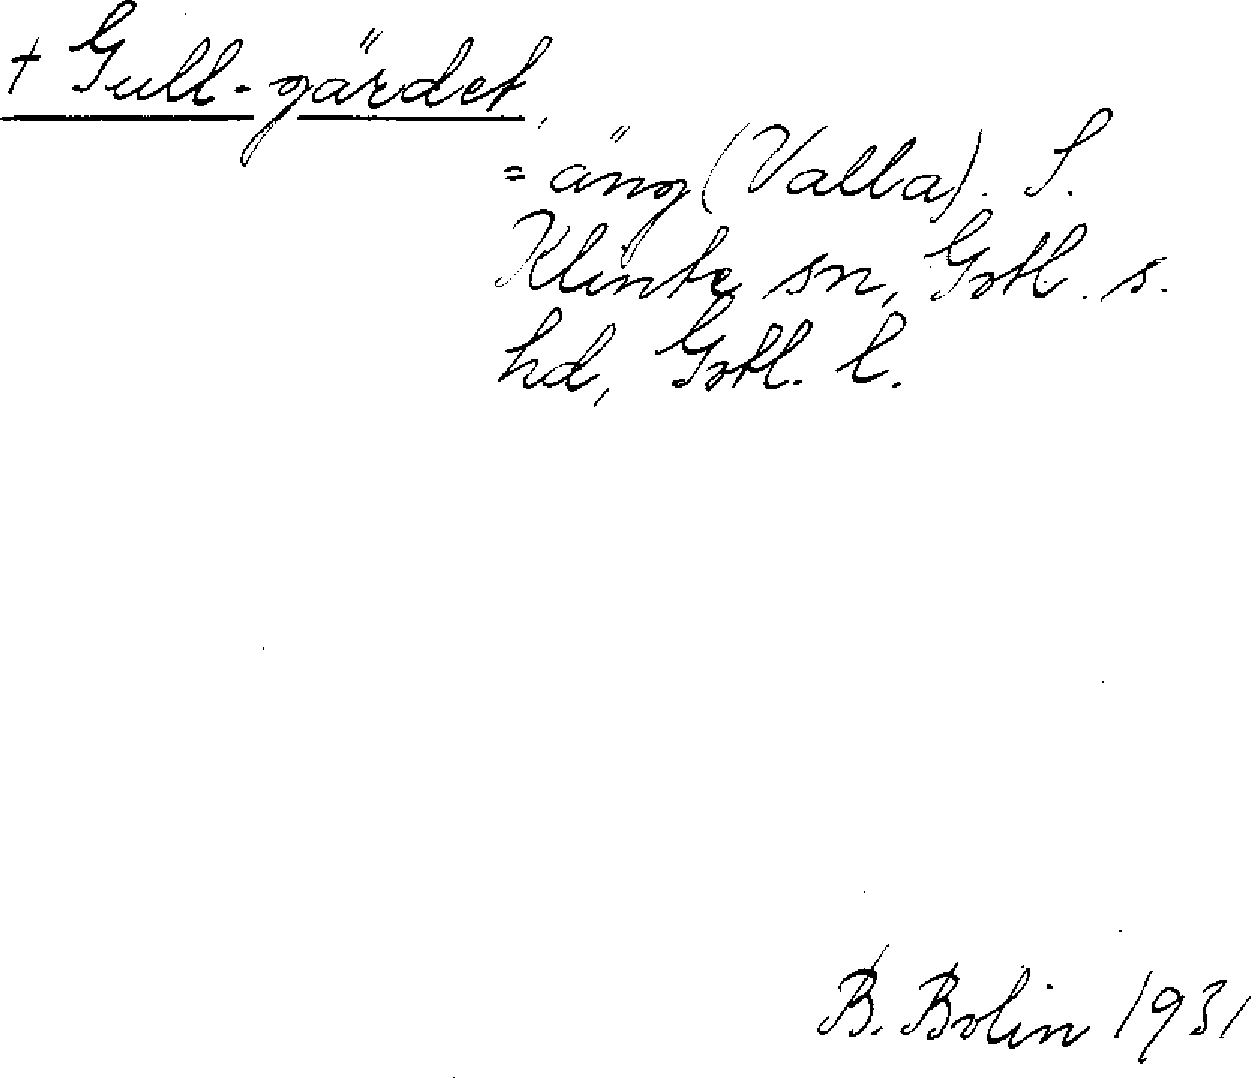 + Gull-gärdet,
= äng (Valla). S.
Klinte sn, Gotl. s.
hd, Gotl. l.
B. Bolin 1931